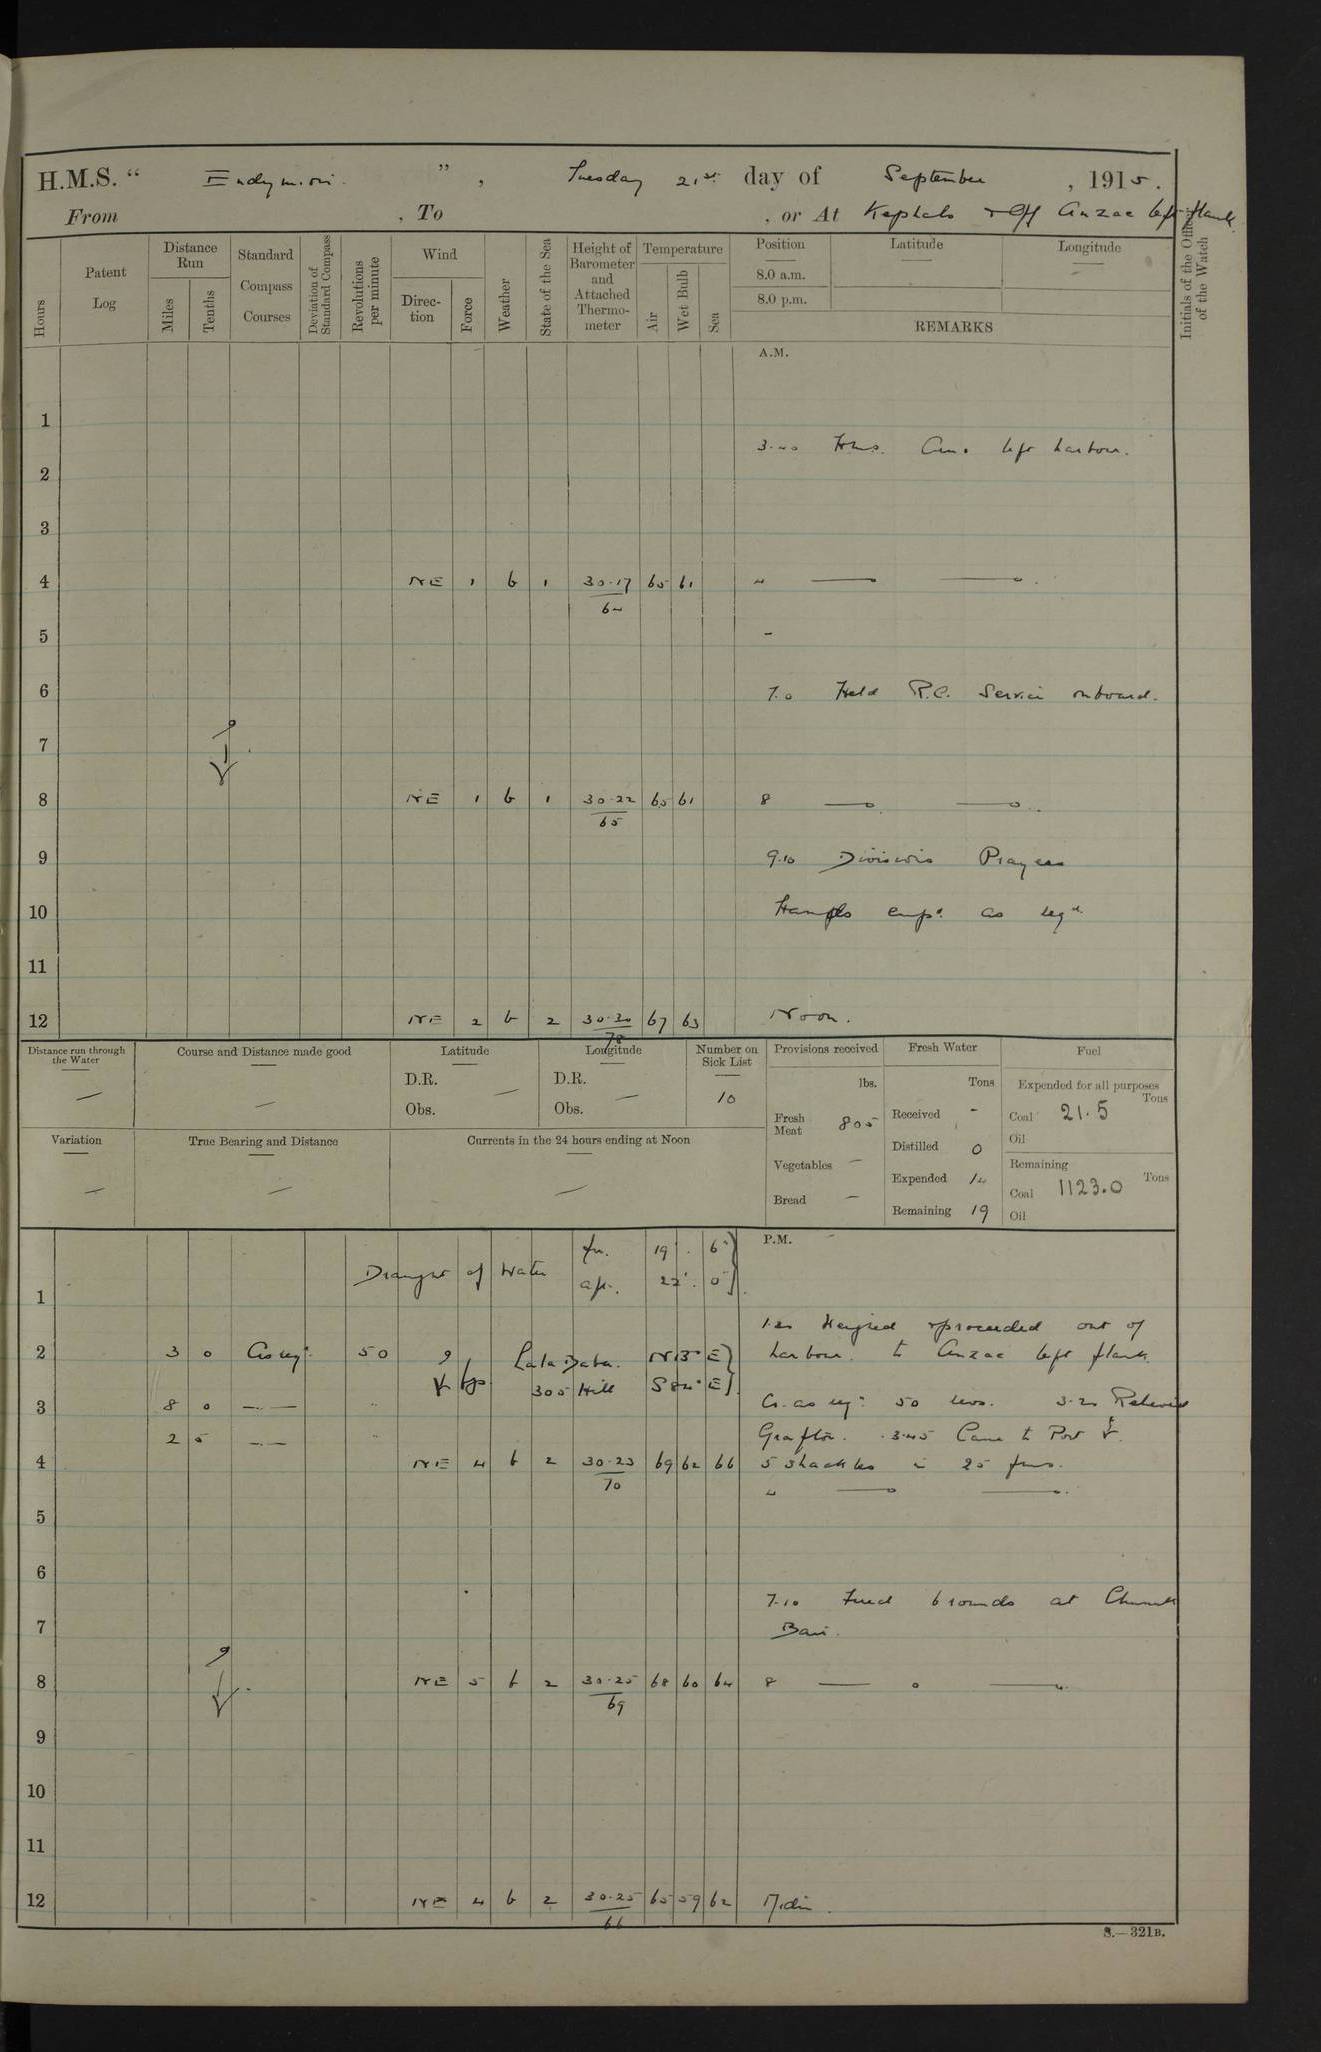 H.M.S. “ Endymion ” , Tuesday 21st day of September , 1915.
From , To , or At Kephalo & Off Anzac left flank
Hours
Patent Log
Distance Run
Miles
Tenths
Standard Compass Courses
Deviation of Standard Compass
Revolutions per minute
Wind
Direction
Force
Weather
State of the Sea
Height of Barometer and Attached Thermometer
Temperature
Air
Wet Bulb
Sea
Position
8.0 a.m.
8.0 p.m.
Latitude
Longitude
REMARKS
Initials of the Officer of the Watch
A.M.
1
3.40 left harbour.
2
3
4 NE 1 b 1 30.17 65 61 4
64
5
6 7.0 Held R.C. Service onboard.
7
8 NE 1 b 1 30.22 65 61 8
65
9 9.10 Divisions Prayers
10 Hands emp. as reqd.
11
12 NE 2 b 2 30.20 67 63 Noon.
78
Distance run through the Water
Course and Distance made good
Latitude
D.R.
Obs.
Longitude
D.R.
Obs.
Number on Sick List
10
Provisions received
lbs.
Fresh Meat 805
Vegetables —
Bread —
Fresh Water
Tons
Received -
Distilled 0
Expended 14
Remaining 19
Fuel
Expended for all purposes
Tons
Coal 21.5
Oil
Remaining
Tons
Coal 1123.0
Oil
Variation
True Bearing and Distance
Currents in the 24 hours ending at Noon
P.M.
Draught of Water for. 19'. 6"
aft. 22'. 0"
1
1.20 Weighed & proceeded out of
2 3 0 As req. 50 Lala Baba. harbour. to Anzac left flank.
305 Hill S84°E
3 8 0 Co. as req. 50 revs. 3.20 Relieved
2 5 Grafton. 3.45 Came to Port
4 NE 4 b 2 30.23 69 62 66 5 shackles in 25 fms.
70
4
5
6
7.10 Fired 6 rounds at Chunuk
7 Bair.
8 NE 5 b 2 30.25 68 60 64 8
69
9
10
11
12 NE 4 b 2 30.25 65 59 62 Midn.
66
S.—321B.